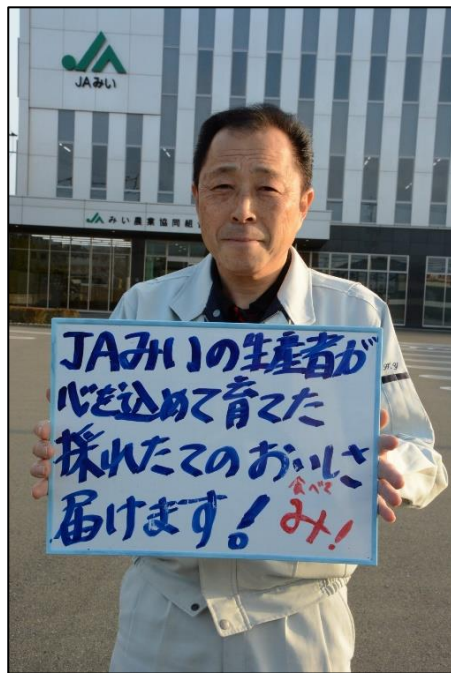 JAみい
JAみい農業協同組
JAみいの生産者が
心を込めて育てた
採れたてのおいしさ
届けます！
食べて
み！